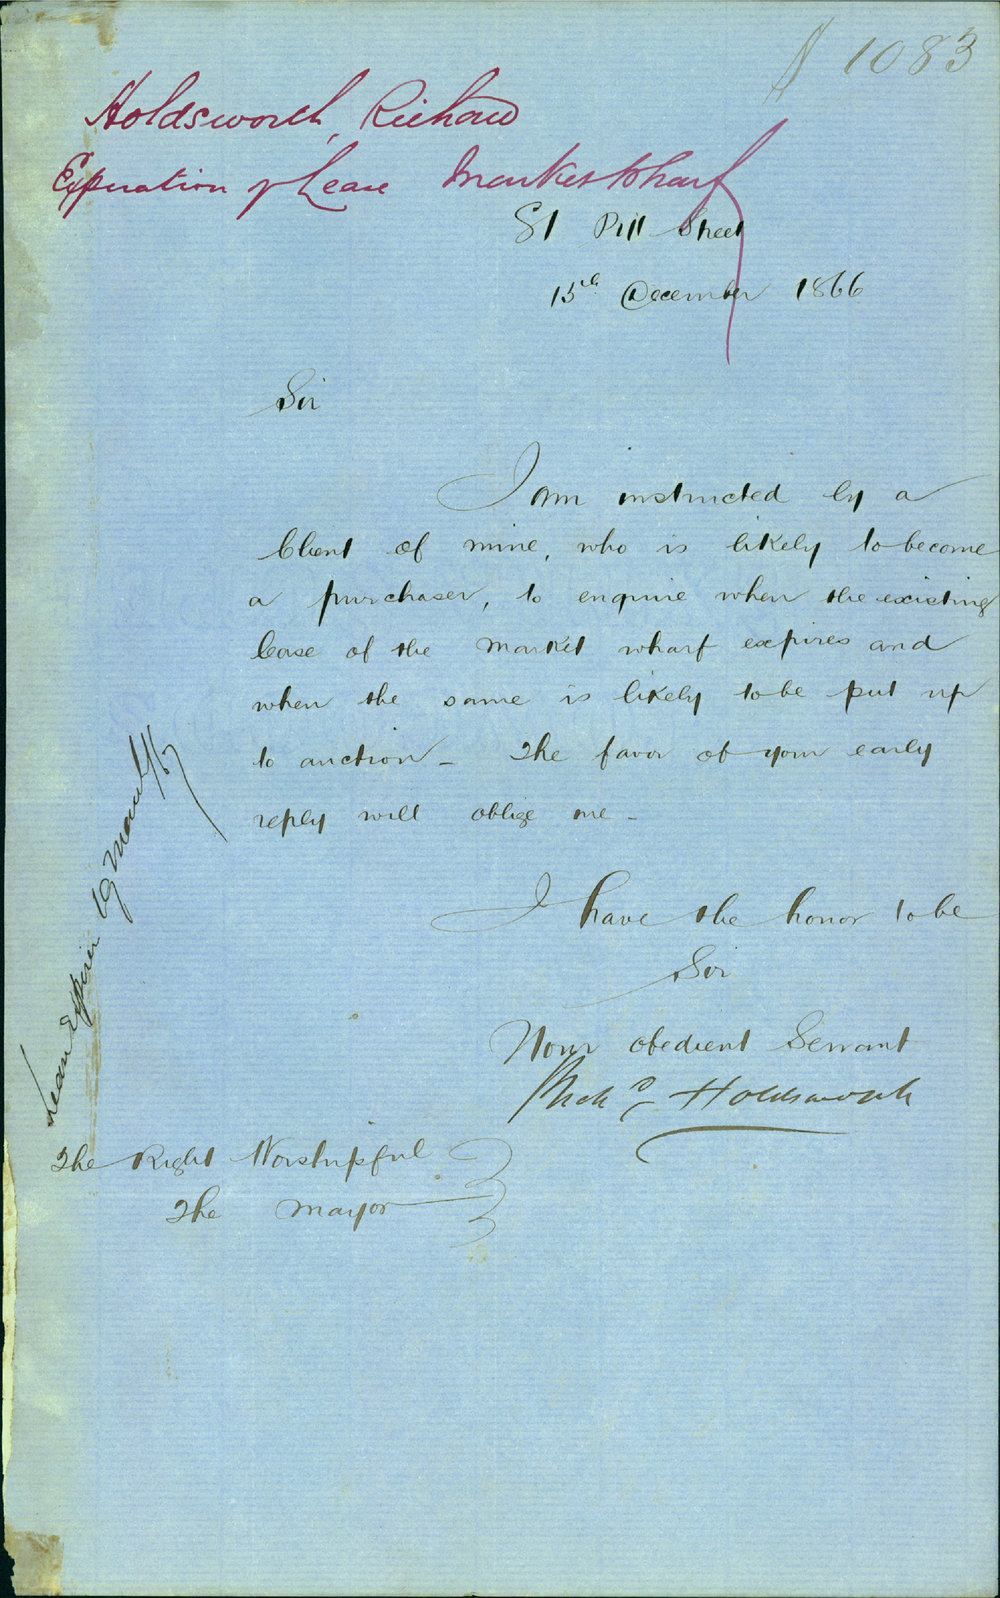 1083
Holdsworth, Richard
Expiration of Lease Market Wharf
81 Pitt Street
15th December 1866
Sir
I am instructed by a
Client of mine, who is likely to become
a purchaser, to enquire when the existing
lease of the Market Wharf expires and
when the same is likely to be put up
to auction – The favor of your early
reply will oblige me –
I have the honor to be
Sir
Your obedient Servant
Richd Holdsworth
The Right Worshipful
The Mayor
Lease Expires 19 March/67